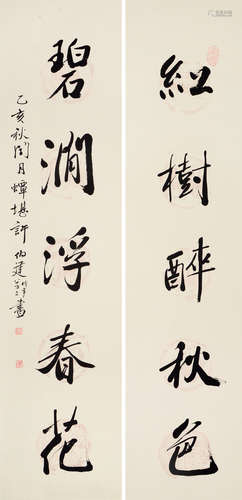 紅樹醉秋色
碧澗浮春花
乙亥秋閏月蟫堪許伯建
書